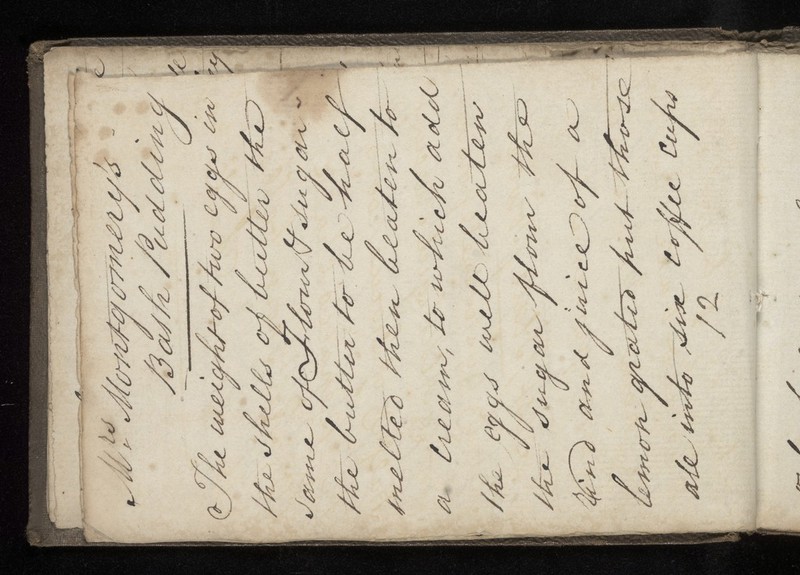 Mrs Montgomery's
Bath Pudding
The weight of two eggs in
the shells of butter the
same of Flour & sugar
the butter to be half
melted then beaten to
a cream, to which add
the eggs well beaten
the sugar flour the
rind and juice of a
lemon grated put those
ale into six coffee cups
12